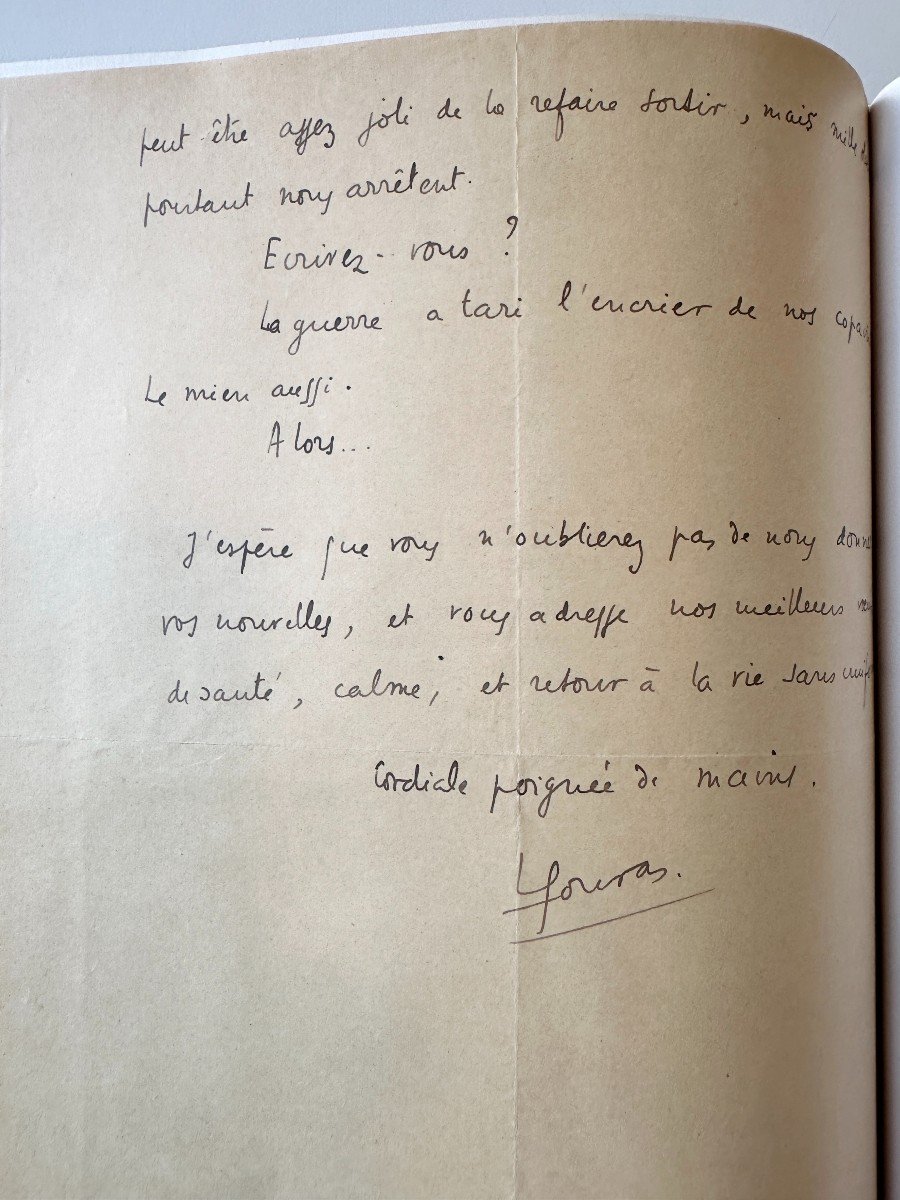 peut être assez joli de la refaire sortir, mais mille
pourtant nous arrêtent.
Ecrivez-vous ?
La guerre a tari l'encrier de nos copa
Le mien aussi.
Alors...
J'espère que vous n'oublierez pas de nous donn
vos nouvelles, et vous adresse nos meilleurs
de santé, calme, et retour à la vie sans unif
Cordiale poignée de mains.